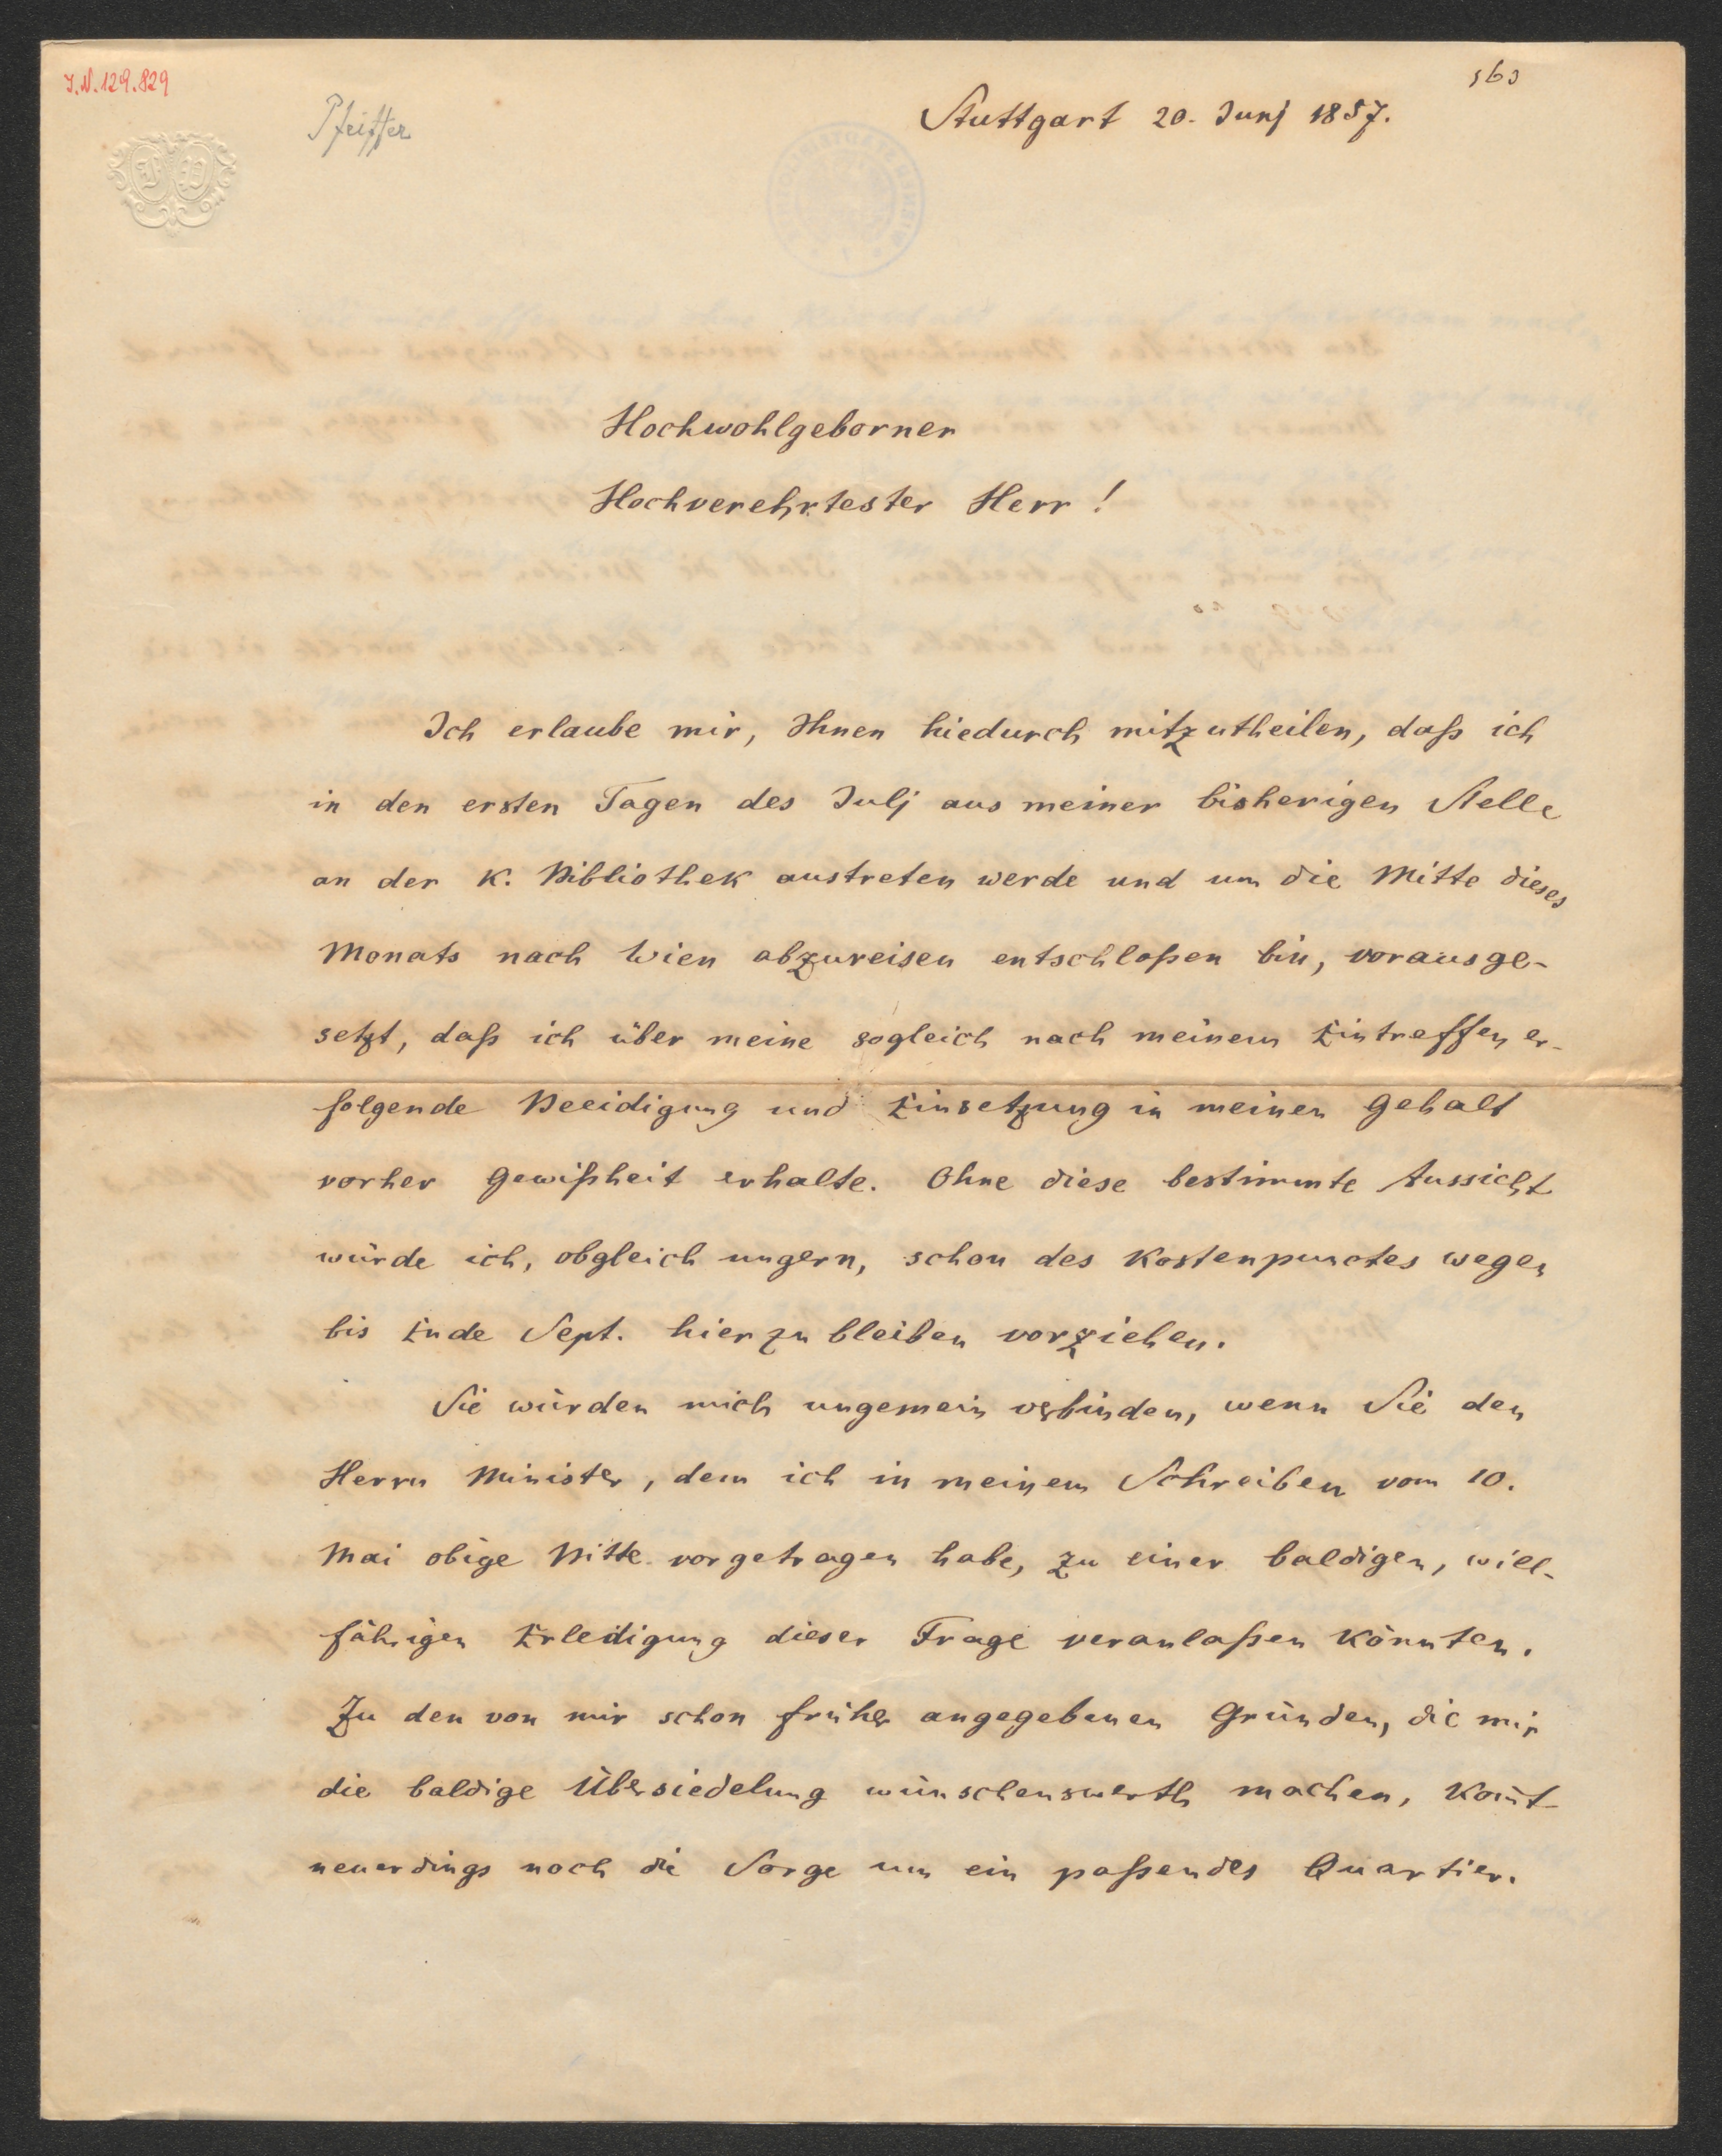 J.N. 129.829
Pfeiffer
Stuttgart 20. Junj 1857.
Hochwohlgeborner
Hochverehrtester Herr!
Ich erlaube mir, Ihnen hiedurch mitzutheilen, daß ich
in den ersten Tagen des Julj aus meiner bisherigen Stelle
an der K. Bibliothek austreten werde und um die Mitte dieses
Monats nach Wien abzureisen entschloßen bin, vorausge-
setzt, daß ich über meine sogleich nach meinem Eintreffen er-
folgende Beeidigung und Einsetzung in meinen Gehalt
vorher Gewißheit erhalte. Ohne diese bestimmte Aussicht
würde ich, obgleich ungern, schon des Kostenpunctes wegen
bis Ende Sept. hier zu bleiben vorziehen.
Sie würden mich ungemein verbinden, wenn Sie den
Herrn Minister, dem ich in meinem Schreiben vom 10.
Mai obige Bitte vorgetragen habe, zu einer baldigen, will-
fährigen Erledigung dieser Frage veranlaßen könnten.
Zu den von mir schon früher angegebenen Gründen, die mir
die baldige Übersiedelung wünschenswerth machen, kom̄t
neuerdings noch die Sorge um ein paßendes Quartier.